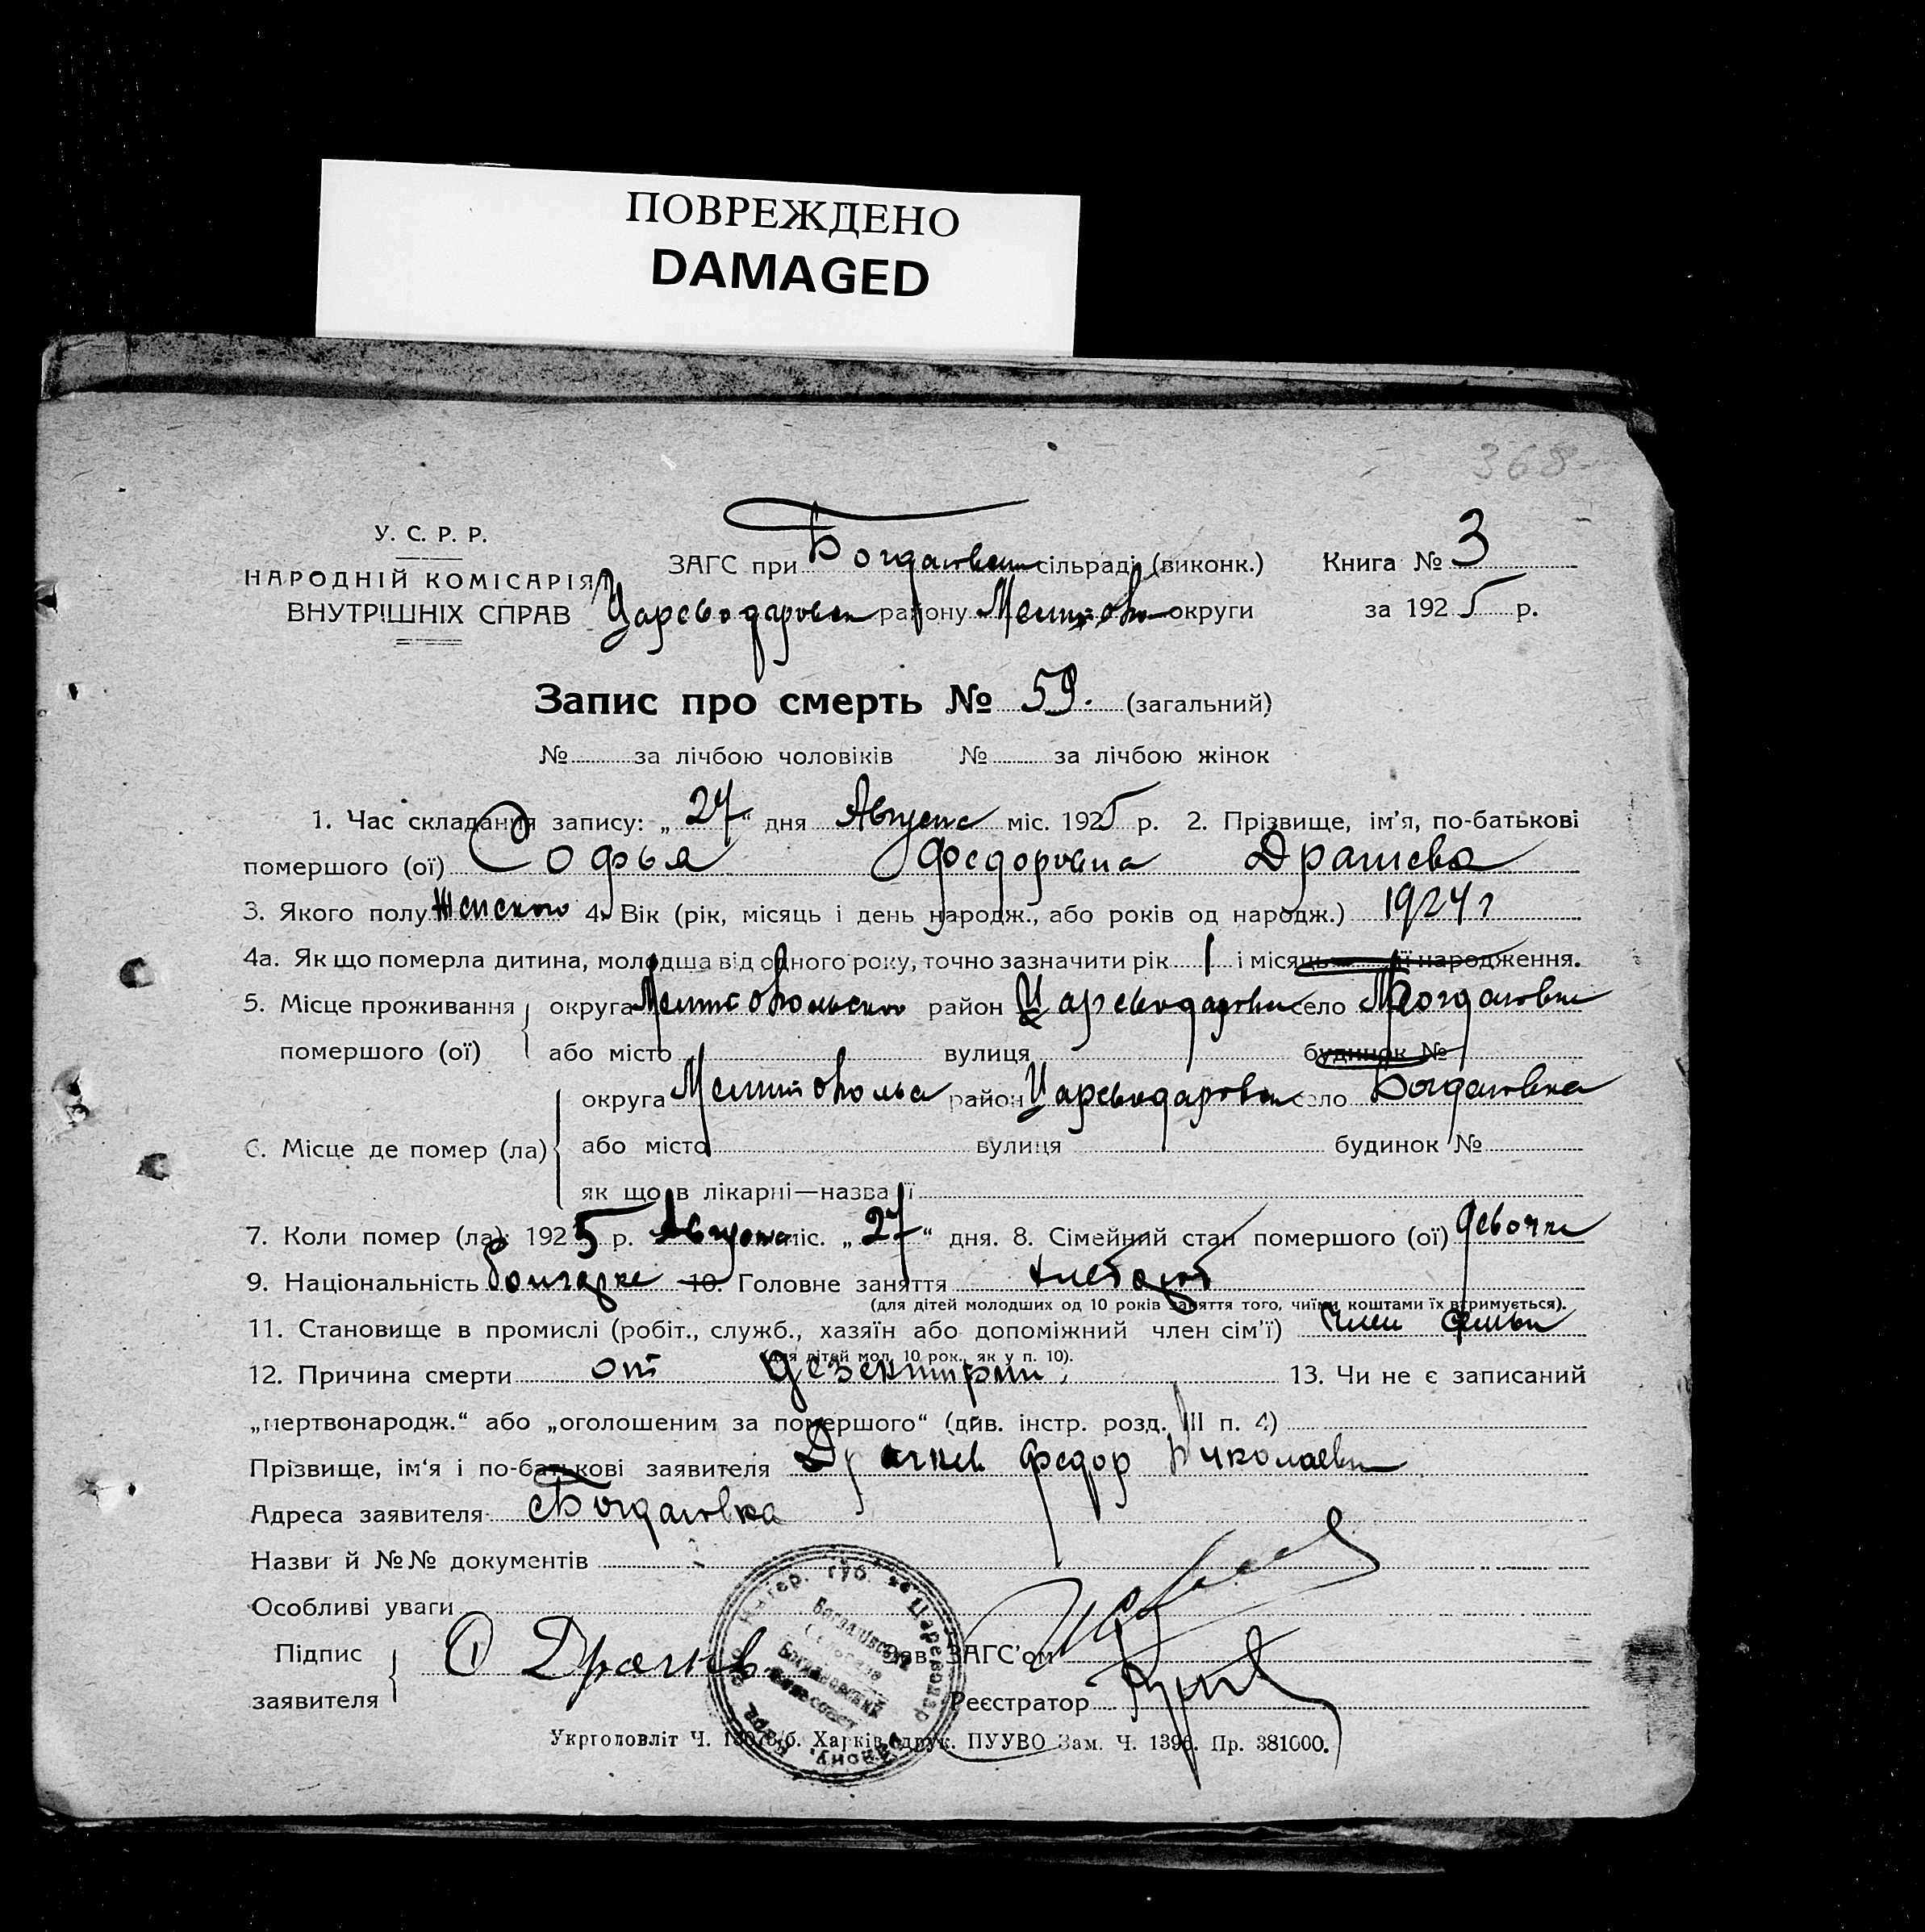 ПОВРЕЖДЕНО
DAMAGED
368
У. С. Р. Р.
НАРОДНІЙ КОМІСАРІЯТ
ВНУТРІШНІХ СПРАВ
ЗАГС при Богдановск сільраді (виконк.) Книга № 3
Цареводаровск району Мелитоп округи за 1925 р.
Запис про смерть № 59. (загальний)
№ за лічбою чоловіків № за лічбою жінок
1. Час складання запису: „27“ дня Августа міс. 1925 р. 2. Прізвище, ім’я, по-батькові
помершого (ої) Софья Федоровна Драгнева
3. Якого полу Женского 4. Вік (рік, місяць і день народж., або років од народж.) 1924 г
4а. Як що померла дитина, молодша від одного року, точно зазначити рік 1 і місяць її народження.
5. Місце проживання округа Мелитопольского район Цареводаровск село Богдановки
помершого (ої) або місто вулиця будинок №
округа Мелитополься район Цареводаровск село Богдановка
6. Місце де помер (ла) або місто вулиця будинок №
як що в лікарні—назва її
7. Коли помер (ла): 1925 р. Августа міс. „27“ дня. 8. Сімейний стан помершого (ої) девочка
9. Національність болгарка 10. Головне заняття хлебороб
(для дітей молодших од 10 років заняття того, чиїми коштами їх втримується).
11. Становище в промислі (робіт., служб., хазяїн або допоміжний член сім’ї) член семьи
(для дітей мол. 10 рок., як у п. 10).
12. Причина смерти от дезентрии 13. Чи не є записаний
„мертвонародж.“ або „оголошеним за помершого“ (див. інстр. розд. III п. 4)
Прізвище, ім‘я і по-батькові заявителя Драгнев Федор Николаевич
Адреса заявителя Богдановка
Назви й №№ документів
Особливі уваги
Підпис
заявителя Драгнев
Зав. ЗАГС’ом
Реєстратор
Укрголовліт Ч. Харків, друк. ПУУВО Зам. Ч. 1396. Пр. 381000.